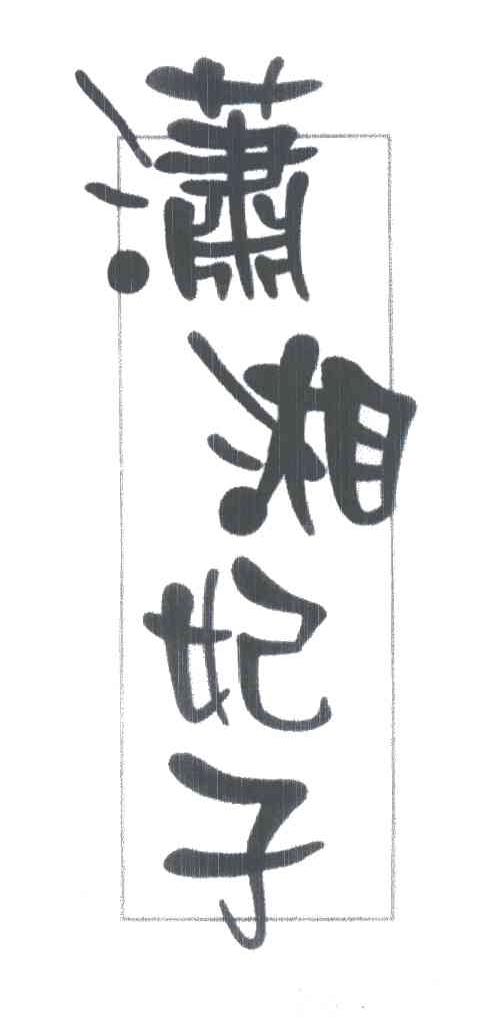 潇湘妃子